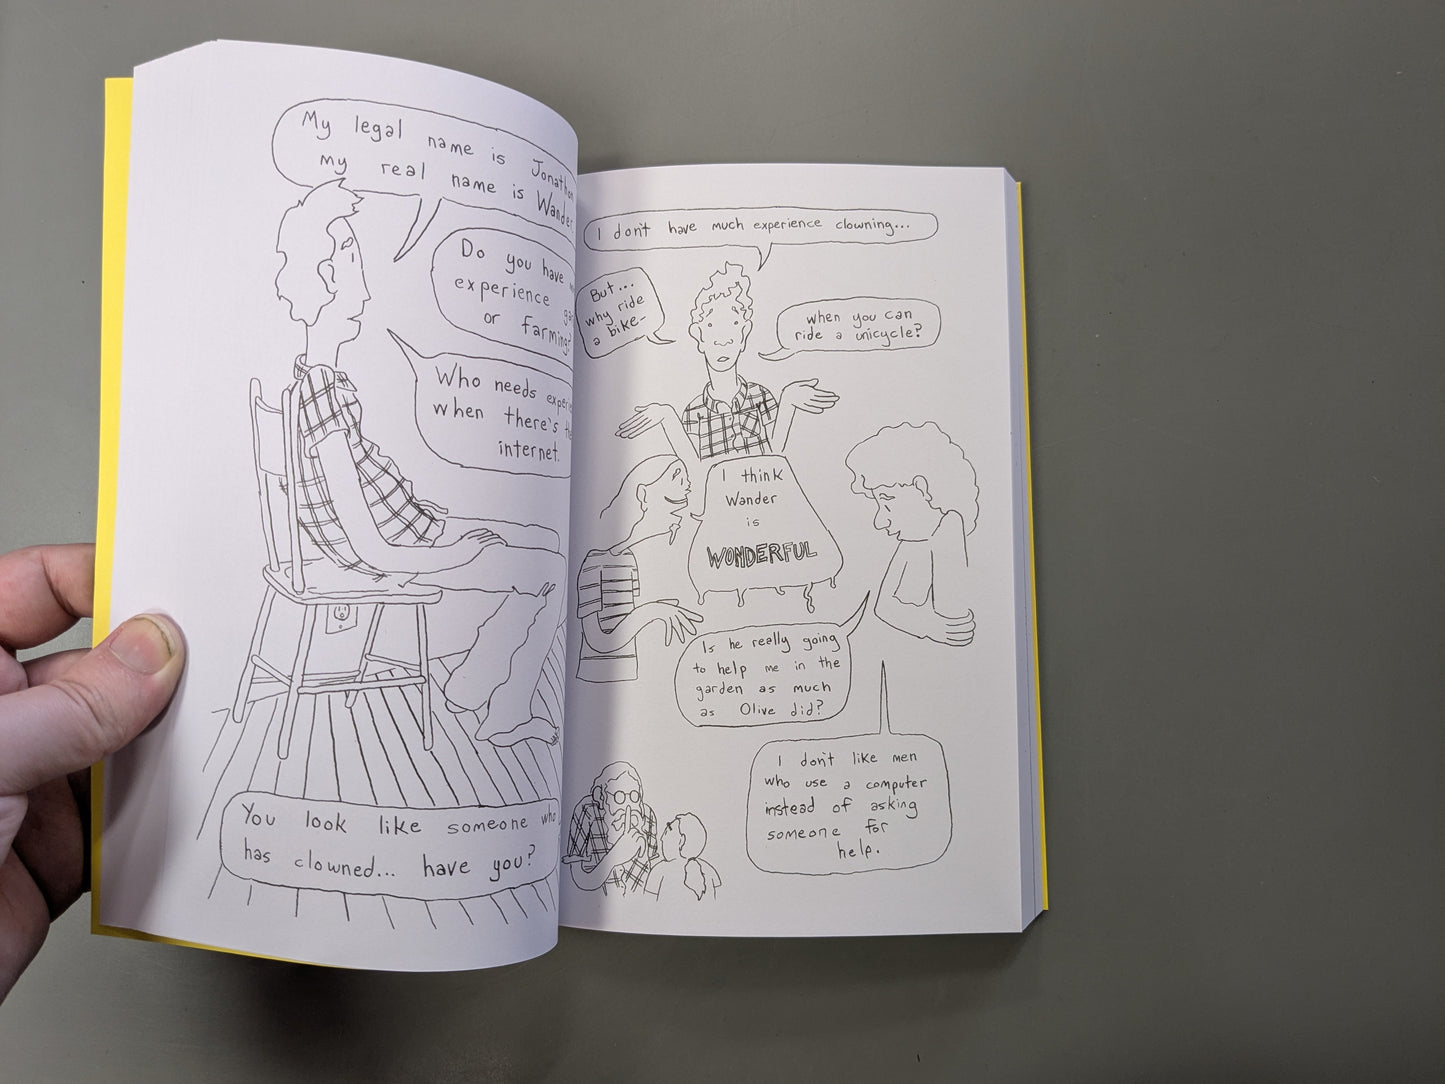 My legal name is Jonathon
my real name is Wander
Do you have
experience
or farming?
Who needs
when there's
internet.
You look like someone who
has clowned... have you?
I don't have much experience clowning...
But...
why ride
a bike-
when you can
ride a unicycle?
I think
Wander
is
WONDERFUL
Is he really going
to help me in the
garden as much
as Olive did?
I don't like men
who use a computer
instead of asking
someone for
help.